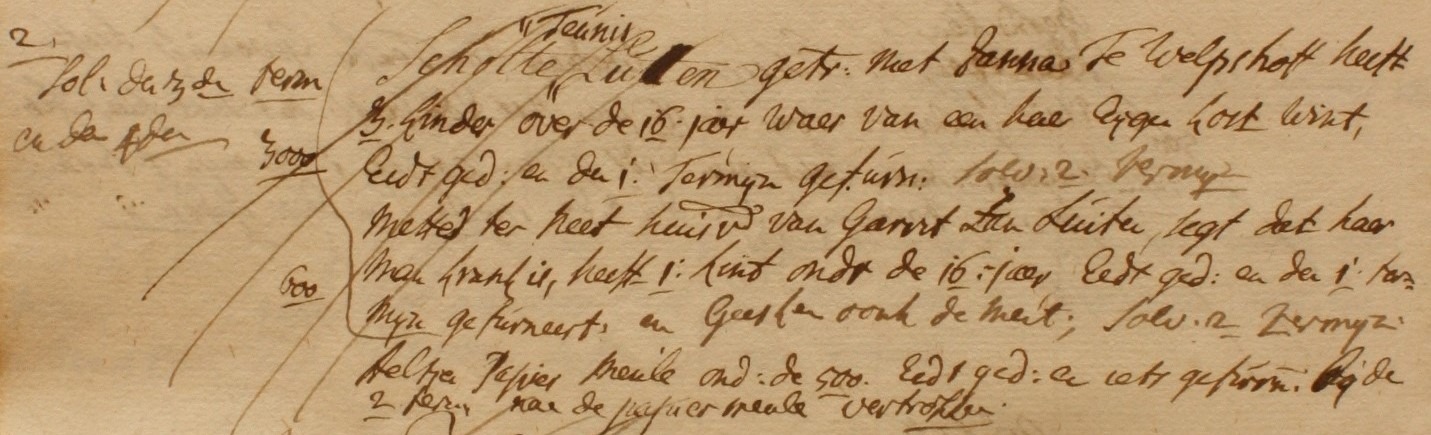 2.
Sol: den 3 de term
en den 4den
3000
600
"Teunis
Scholte "Luiten getr: met Janna Te Welpshoff heeft
3. kinder over de 16. jaer waer van een haer Eygen kost wint,
Eedt ged: en den 1: Termyn gefurn: solv: 2. termyn
Mette ter Neet huisv van Garrit Luiten, segt dat haer
Man krank is, heeft 1: kint ondr de 16: jaer Eedt ged: en den 1: ter=
myn gefurneert, en Geesken oonk de meit; solv: 2 Termyn
Aeltjen Papier meule ond: de 500. Eedt ged: en iets gefurn: by de
2 term: nae de papier meule vertrokken.